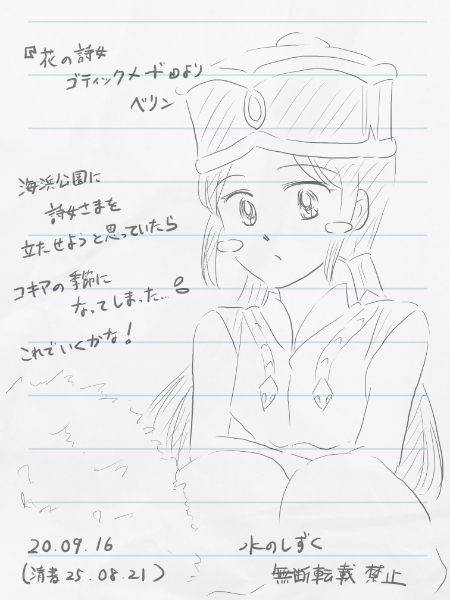 『花の詩女
ゴティックメードより
ベリン
海浜公園に
詩女さまを
立たせようと思っていたら
コキアの季節に
なってしまった…。
これでいくかな！
20.09.16
(清書25.08.21)
水のしずく
無断転載禁止